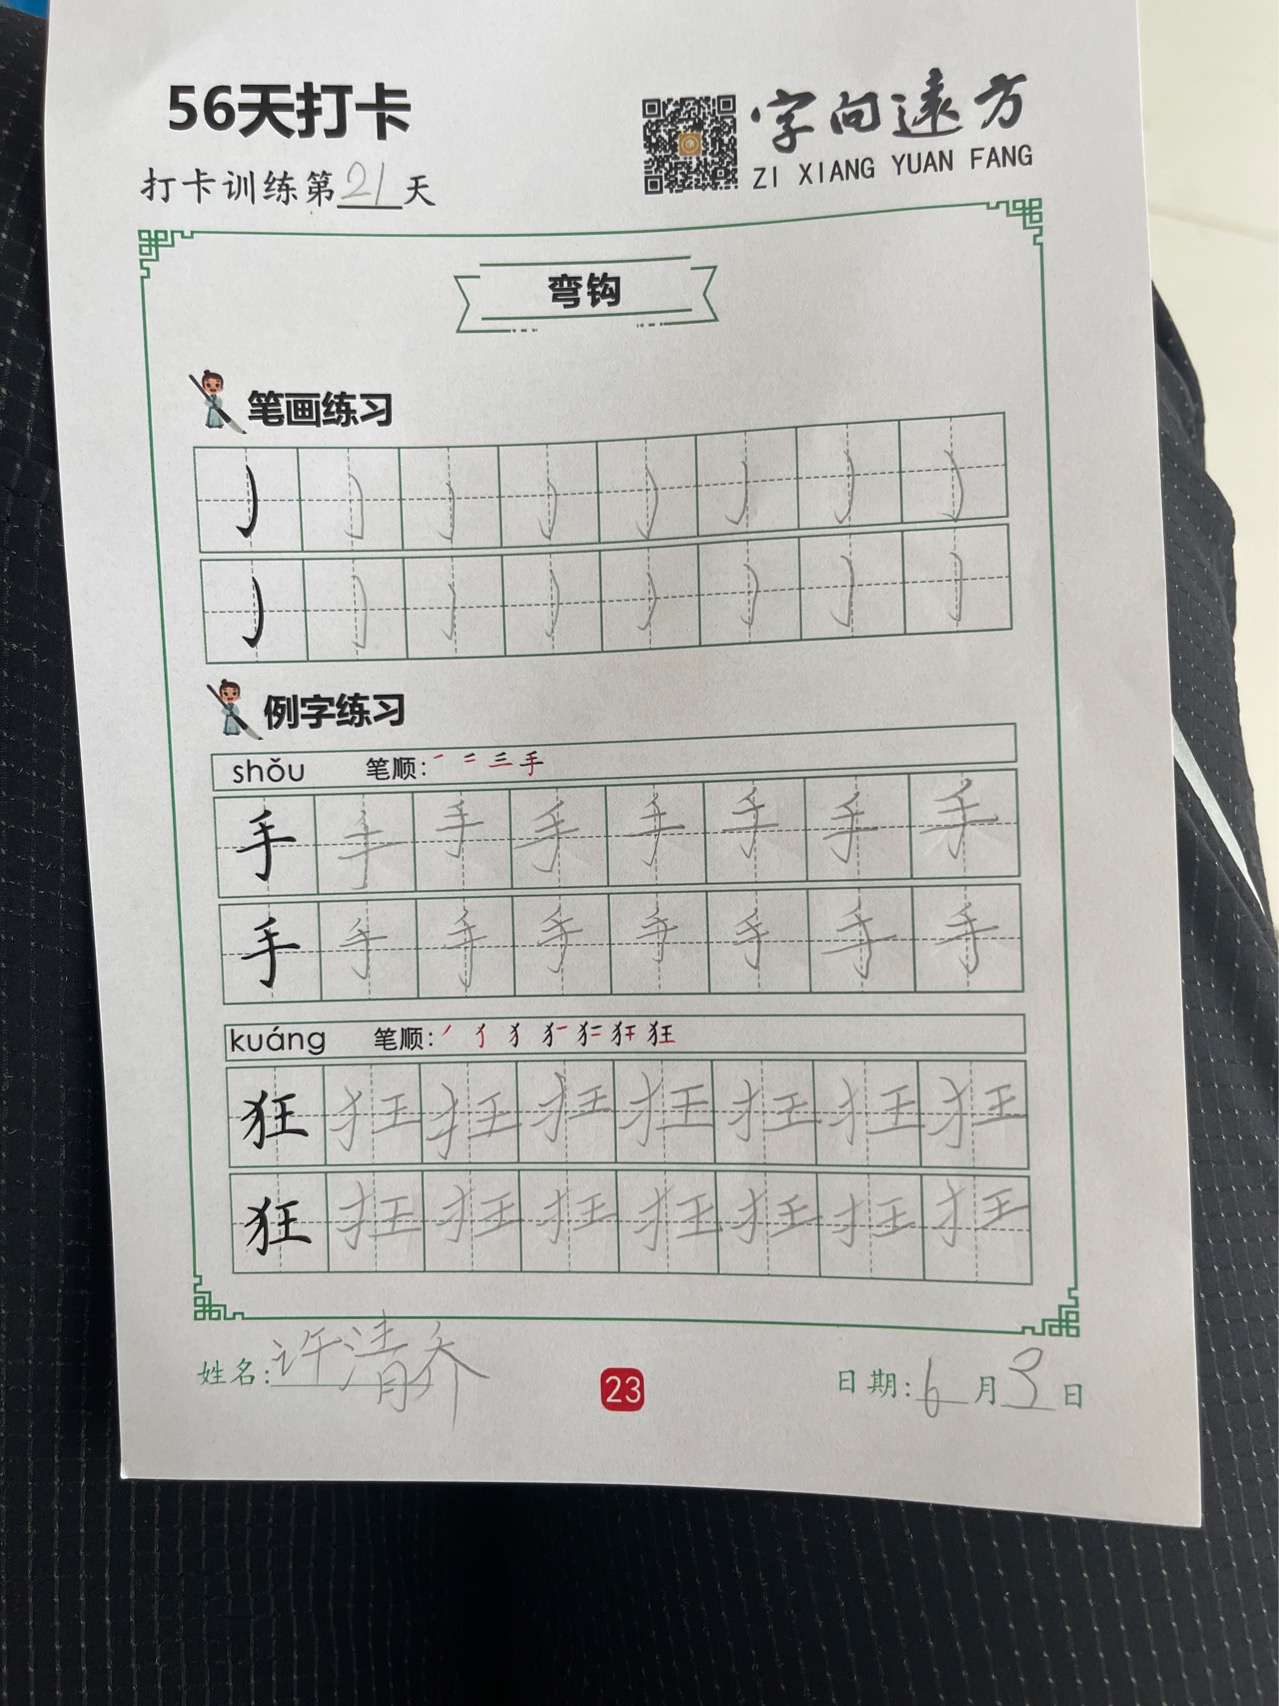 56天打卡
字向遠方
ZI XIANG YUAN FANG
打卡训练第21天
弯钩
笔画练习
例字练习
shǒu 笔顺: 一 二 三 手
手 手 手 手 手 手 手 手
手 手 手 手 手 手 手 手
kuáng 笔顺: 狂
狂 狂 狂 狂 狂 狂 狂 狂
狂 狂 狂 狂 狂 狂 狂 狂
姓名: 许清乔 23 日期: 6月3日